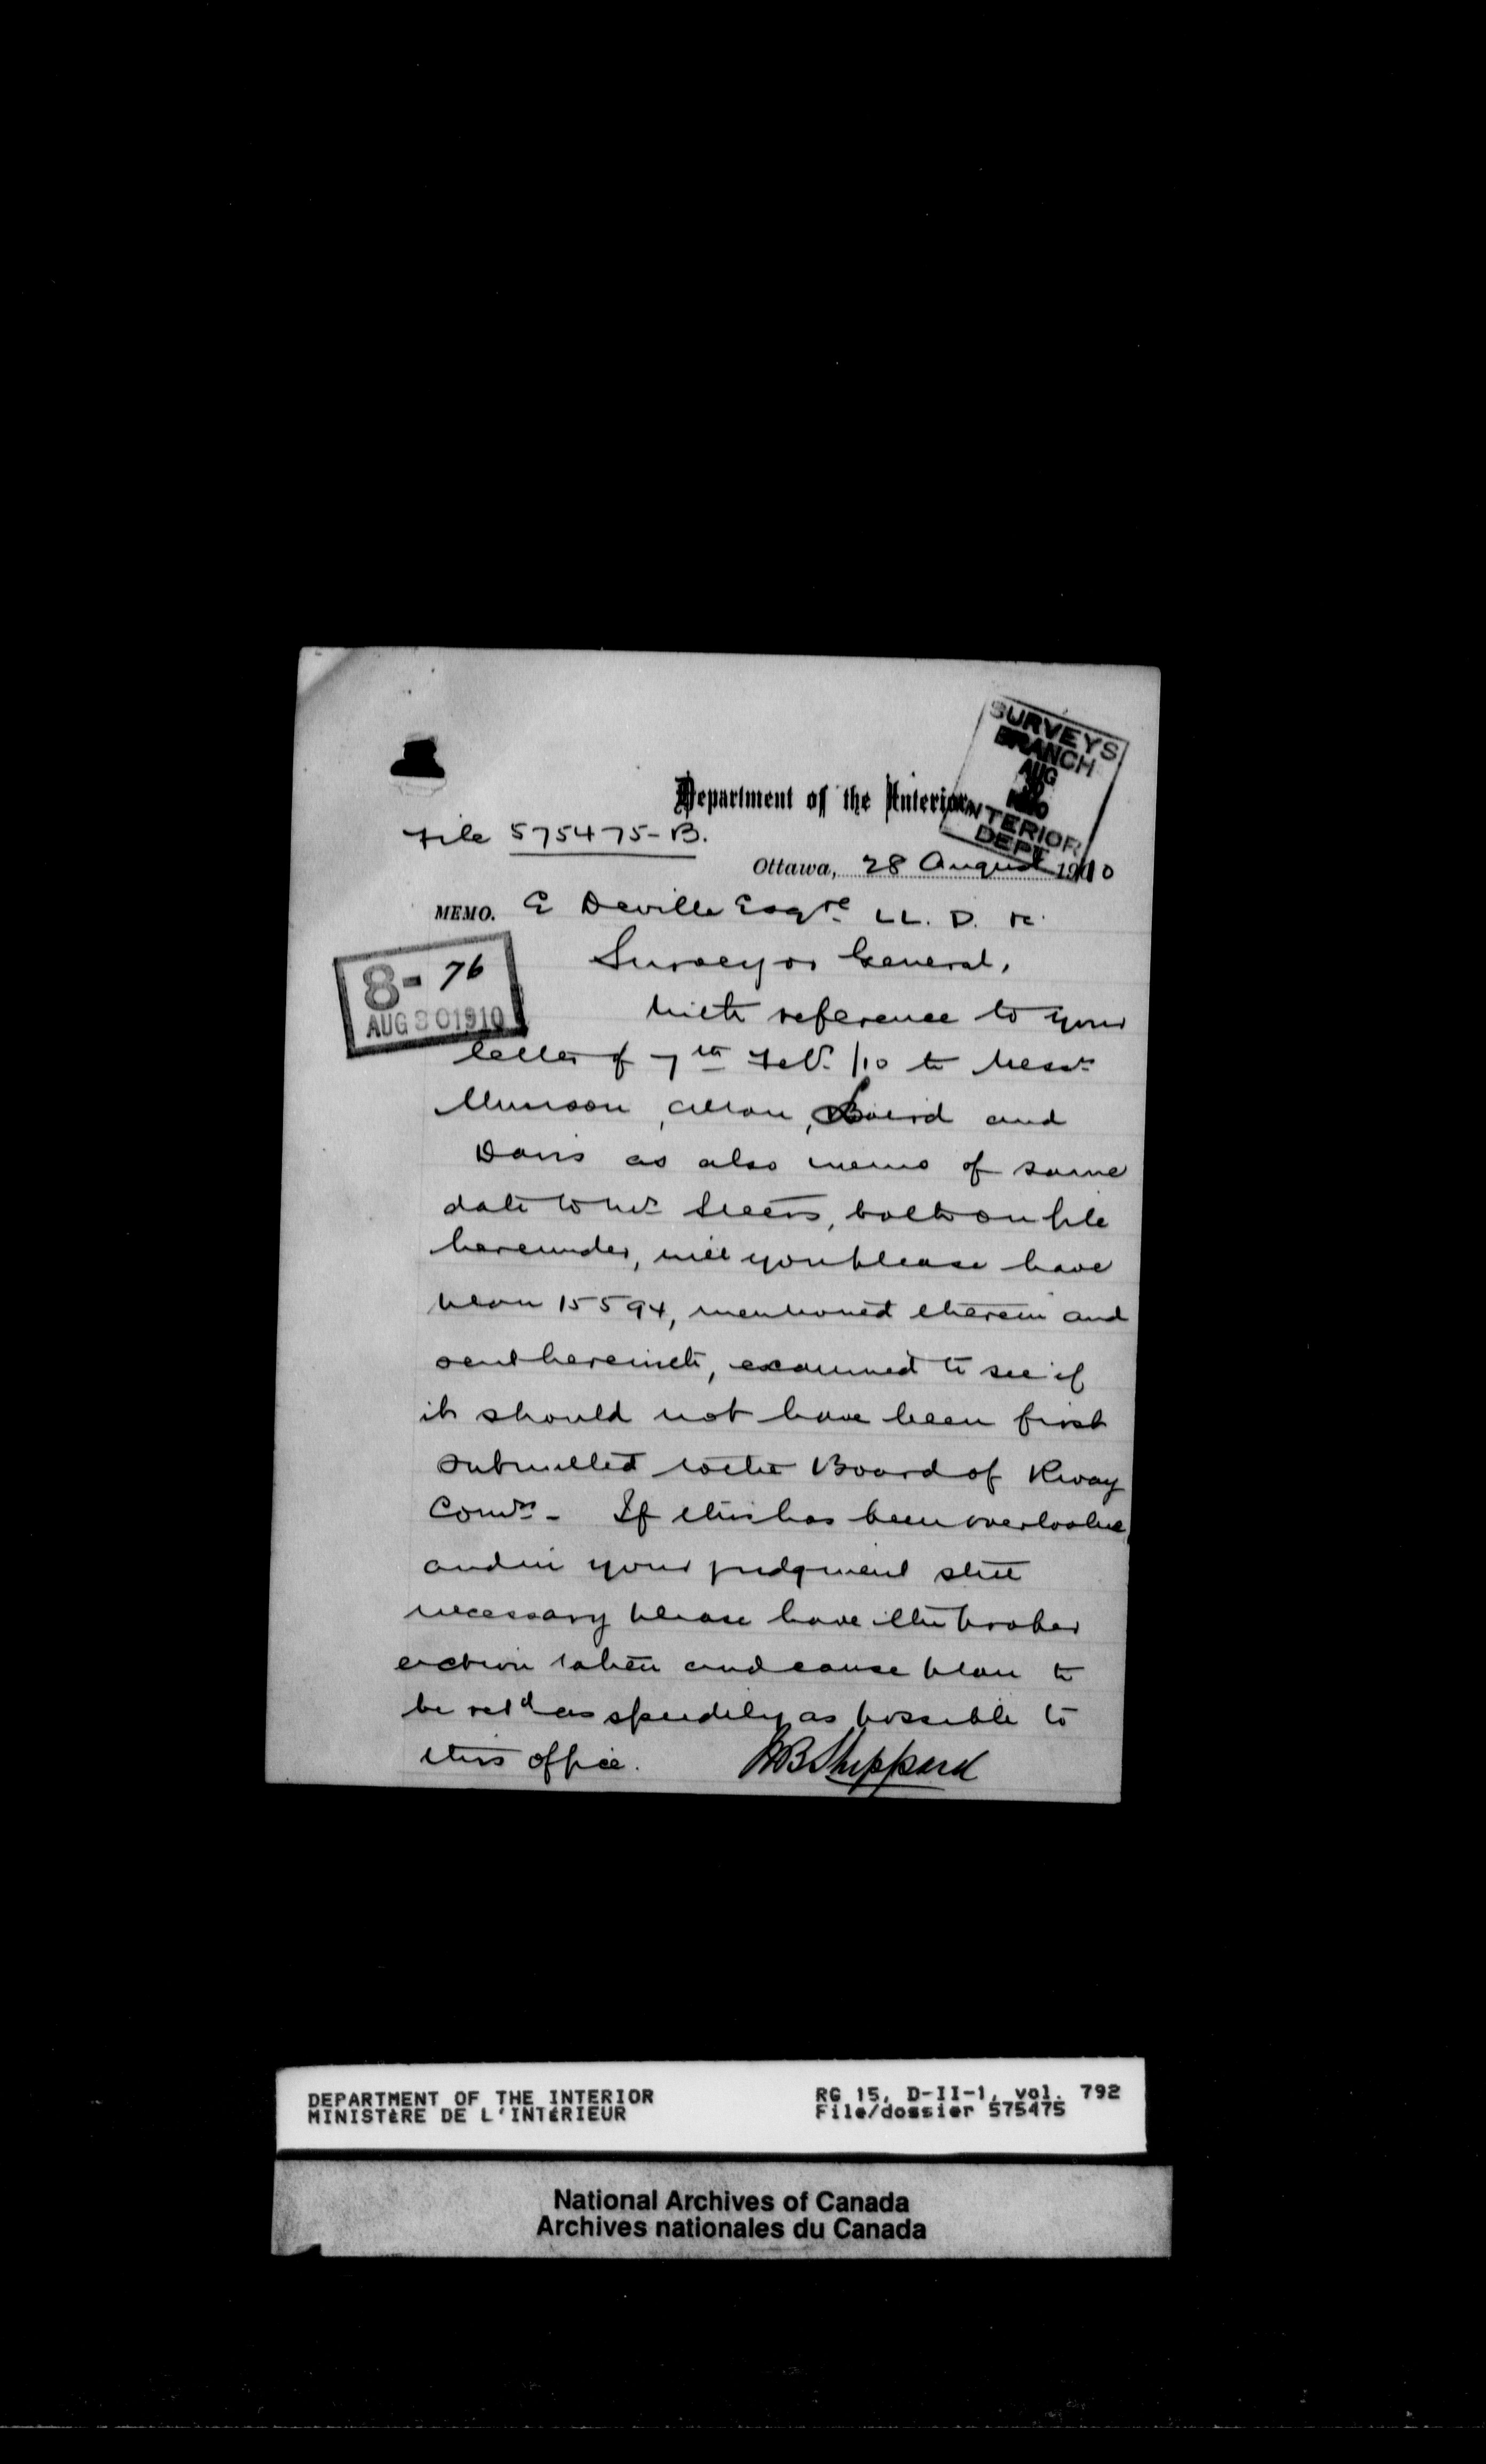 SURVEYS
BRANCH
AUG
30
1910
INTERIOR
DEPT
Department of the Interior
File 575475-B.
Ottawa, 28 August 1910
MEMO. E Deville Esqre LL. D. &c.
Surveyor General,
8- 76
AUG 30 1910
With reference to your
letter of 7th Feb. /10 to Messrs
Munson, Allan, Laird and
Davis as also memo of same
date to Mr. , both on file
hereunder, will you please have
plan 15594, mentioned therein and
sent herewith, examined to see if
it should not have been first
submitted to the Board of Rway
Comrs - If this has been overlooked
and in your judgment still
necessary please have the proper
action taken and cause plan to
be retd as speedily as possible to
this office. Sheppard
DEPARTMENT OF THE INTERIOR
MINISTÈRE DE L'INTÉRIEUR
RG 15, D-II-1, vol. 792
File/dossier 575475
National Archives of Canada
Archives nationales du Canada